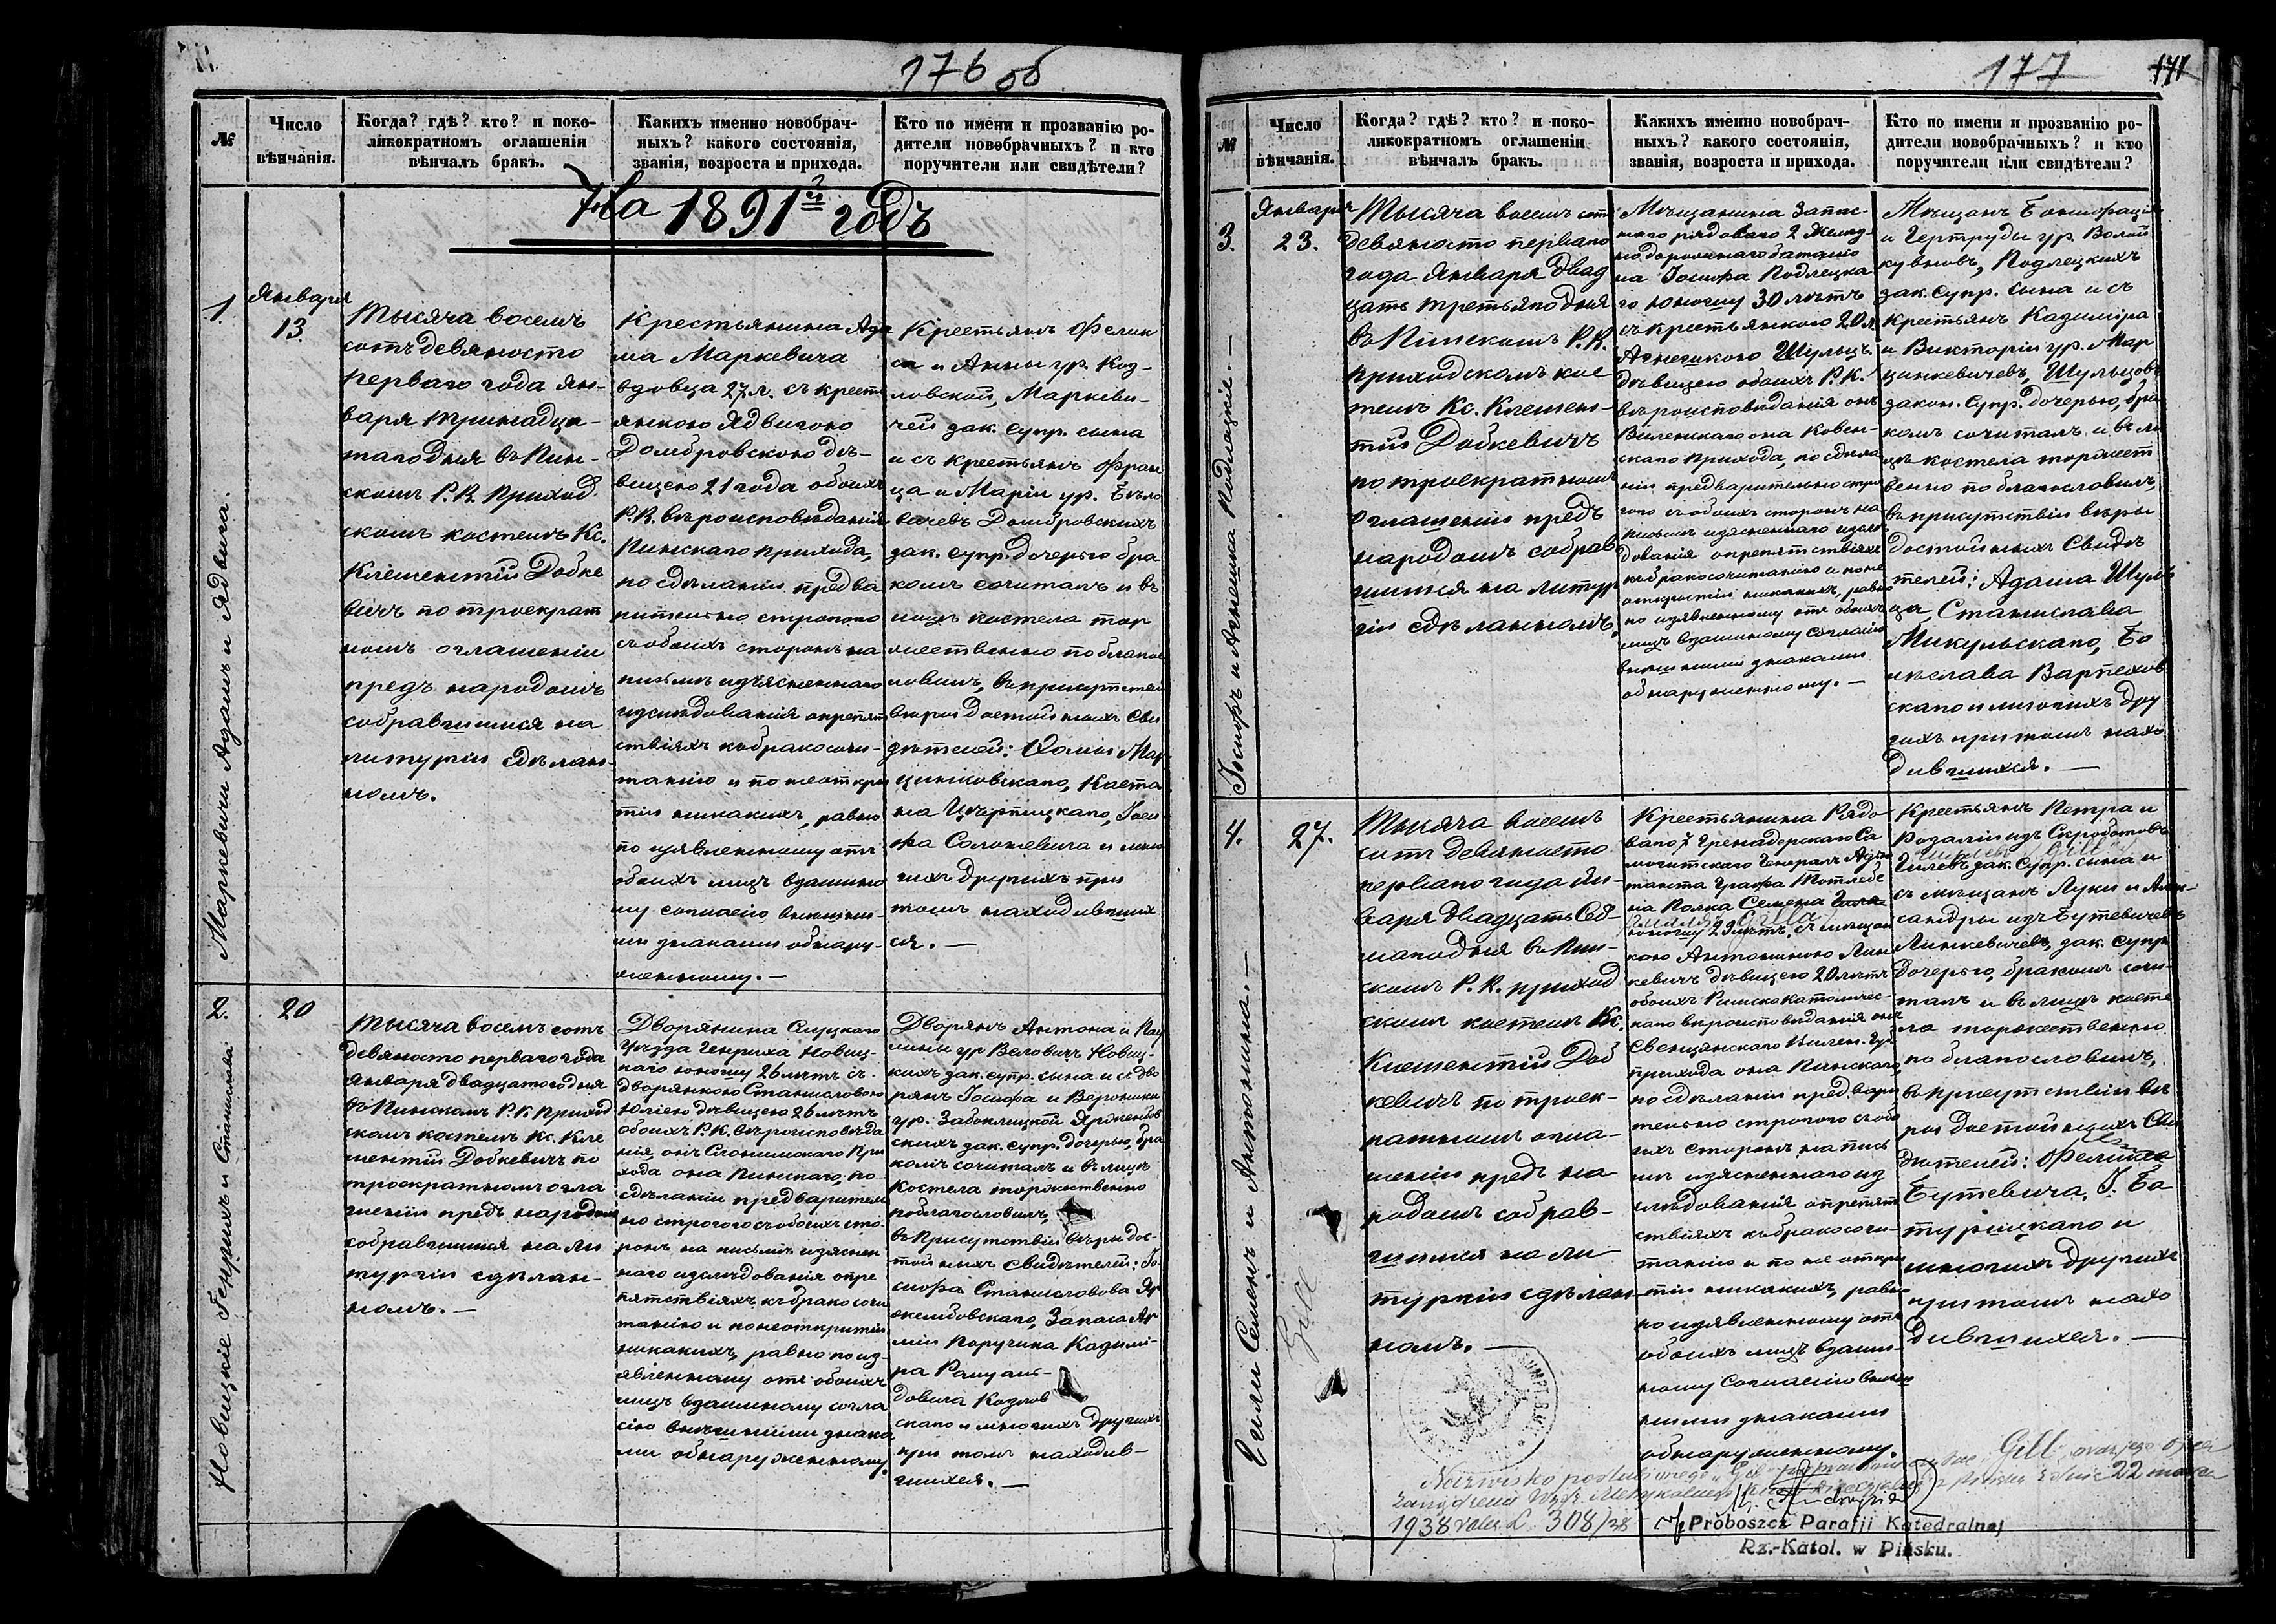 176 об
№
Число
вѣнчанія.
Когда? гдѣ? кто? и поко-
ликократномъ оглашеніи
вѣнчалъ бракъ.
Какихъ именно новобрач-
ныхъ? какого состоянія,
званія, возроста и прихода.
Кто по имени и прозванію ро-
дители новобрачныхъ? и кто
поручители или свидѣтели?
На 1891й годъ
1.
Маркевичи Адамъ и Ядвига.
Января
13.
Тысяча восемъ
сотъ девяносто
перваго года Ян-
варя тринадца-
таго дня въ Пин-
скомъ Р.К. Приход.
скомъ костелѣ Кс.
Клементій Добке
вичъ по троекрат
номъ оглашеніи
предъ народомъ
собравшимся на
литургіи сдѣлан-
номъ.
Крестьянина Ада
ма Маркевича
вдовца 27 л. съ крестъ
янкою Ядвигою
Домбровскою дѣ-
вицею 21 года обоихъ
Р.К. вѣроисповѣданія
Пинскаго прихода,
по сдѣланіи предва
рительно строгого
съ обоихъ сторонъ на
письмѣ изъясненнаго
изслѣдованія опрепят
ствіяхъ къ бракосоче-
танію и по неоткры
тіи никакихъ, равно
по изявленному отъ
обоихъ лицъ взаимно
му согласію внѣшни-
ми знаками обнару-
женному. —
Крестьянъ Фелик
са и Анны ур. Коз-
ловской, Маркеви-
чей зак. супр. сына
и съ крестьянъ Фран
ца и Маріи ур. Бѣло
вичевъ Домбровскихъ
зак. супр. дочерью бра
комъ сочиталъ и въ
лицѣ костела тор
жественно поблагос
ловилъ, въ присутствіи
вѣры достойныхъ сви
дѣтелей: Фомы Мар
цинковскаго, Каета
на Цчерпицкаго, Іоси
фа Солоневича и мно
гихъ другихъ при
томъ находившихъ
ся. —
2.
Новицкіе Генрихъ и Станислава
20
Тысяча восемъ сотъ
девяносто перваго года
Января двадцатого дня
въ Пинскомъ Р.К. Приход
скомъ костелѣ Кс. Кле
ментій Добкевичъ по
троекратномъ огла
шеніи предъ народомъ
собравшимся на ли
тургіи сдѣлан-
номъ. —
Дворянина Слуцкаго
уѣзда Генриха Новиц-
каго юношу 26 лѣтъ съ
дворянкою Станиславою
Юліею дѣвицею 26 лѣтъ
обоихъ Р.К. вѣроисповѣда
нія, онъ Слонимскаго при
хода она Пинскаго, по
сдѣланіи предварител
но строгого съ обоихъ сто-
ронъ на письмѣ изяснен
наго изслѣдованія опре
пятствіяхъ къ бракосоче
танію и по неоткрытіи
никакихъ, равно по из-
явленному отъ обоихъ
лицъ взаимному согла
сію внѣшними знака
ми обнаруженному.
Дворянъ Антона и Пау
лины ур. Веловичъ Новиц-
кихъ зак. супр. сына и съ дво
рянъ Іосифа и Вероники
ур. Заблоцкой Ярженбов
скихъ зак. супр. дочерью, бра
комъ сочиталъ и въ лицѣ
костела торжественно
поблагословилъ,
въ присутствіи вѣры дос-
тойныхъ свидѣтелей: Іо-
сифа Станиславова Яр
женбовскаго, Запаса Ар
міи Поручика Казимі-
ра
довича Козлов
скаго и многихъ другихъ
при томъ находив-
шихся. —
177
171
№
Число
вѣнчанія.
Когда? гдѣ? кто? и поко-
ликократномъ оглашеніи
вѣнчалъ бракъ.
Какихъ именно новобрач-
ныхъ? какого состоянія,
званія, возроста и прихода.
Кто по имени и прозванію ро-
дители новобрачныхъ? и кто
поручители или свидѣтели?
3.
Іосифъ и Агнешка Подлецкіе. —
Января
23.
Тысяча восемъ сотъ
девяносто перваго
года Января двад
цать третьяго дня
въ Пинскомъ Р.К.
приходскомъ кос
телѣ Кс. Клемен-
тій Добкевичъ
по троекратномъ
оглашеніи предъ
народомъ собрав
шимся на литур
гіи сдѣланномъ.
Мѣщанина запас-
ного рядового 2 Желѣз-
нодорожнаго баталіо
на Іосифа Подлецка
го юношу 30 лѣтъ
съ крестьянкою 20 л.
Агнешкою Шульцъ
дѣвицею обоихъ Р.К.
вѣроисповѣданія онъ
Виленскаго она Ковен-
скаго прихода, по сдѣла
ніи предварительно стро
гого съ обоихъ сторонъ на
письмѣ изясненнаго изслѣ
дованія опрепятствіяхъ
къ бракосочитанію и по не
открытіи никакихъ, равно
по изявленному отъ обоихъ
лицъ взаимному согласію
внѣшними знаками
обнаруженному. —
Мѣщанъ Бонифація
и Гертруды ур.
Подлецкихъ
зак. супр. сына и съ
крестьянъ Казиміра
и Викторіи ур. Мар
цинкевичевъ, Шульцовъ
закон. супр. дочерью, бра
комъ сочиталъ и въ ли
цѣ костела торжест
венно поблагословилъ,
въ присутствіи вѣры
достойныхъ свидѣ
телей: Адама Шуль
ца, Станислава
Микульскаго, Бо
леслава Варпехов
скаго и многихъ дру
гихъ при томъ нахо
дившихся. —
4.
Гили Семенъ и Антонина. —
Gill
27.
Тысяча восемъ
сотъ девяносто
перваго года Ян-
варя двадцать седь
маго дня въ Пин-
скомъ Р.К. приход
скомъ костелѣ Кс.
Клементій Доб
кевичъ по троек-
ратномъ огла-
шеніи предъ на
родомъ собрав-
шимся на ли
тургіи сдѣлан
номъ. —
Крестьянина Рядо-
ваго 7 Гренадерскаго Са
могитскаго Генералъ Адъю
танта Графа Тотлебе
на Полка Семена Гиля
Gilla
юношу 29 лѣтъ, съ мѣщан
кою Антониною Лин
кевичъ дѣвицею 20 лѣтъ
обоихъ Римскокатоличес-
каго вѣроисповѣданія онъ
Свенцянскаго Вилен. губ.
прихода она Пинскаго,
по сдѣланіи предвари
тельно строгого съ обо
ихъ сторонъ на пись
мѣ изясненнаго из
слѣдованія опрепят
ствіяхъ къ бракосоче-
танію и по не откры
тіи никакихъ, равно
по изявленному отъ
обоихъ лицъ взаим-
ному согласію внѣш
ними знаками
обнаруженному.
Крестьянъ Петра и
Розаліи изъ Скробатовъ
Gill
Гилевъ зак. супр. сына и
съ мѣщанъ Луки и Алек-
сандры изъ Бутевичевъ
Линкевичевъ, зак. супр
дочерью, бракомъ сочи-
талъ и въ лицѣ косте
ла торжественно
поблагословилъ,
въ присутствіи вѣ
ры достойныхъ сви
дѣтелей: Феликса
Бутевича, І. Ба
турицкаго и
многихъ другихъ
при томъ нахо
дившихся. —
Nazwisko "Gill" oraz jego ojca
22 marca
1938 roku L. 308/38
Proboszcz Parafji Katedralnej
Rz.-Katol. w Pińsku.